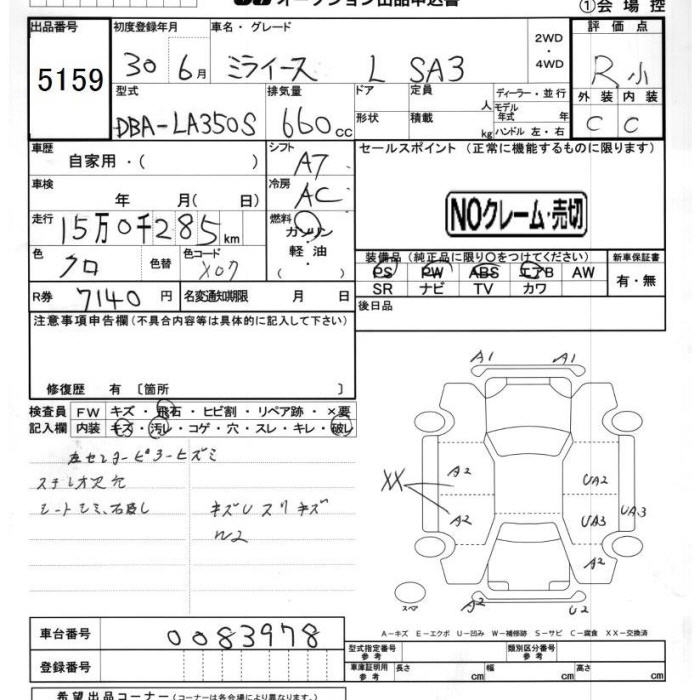 オークション出品申込書
①会場控
出品番号
5159
初度登録年月
30 6月
車名・グレード
ミライース L SA3
2WD
・
4WD
評価点
R小
外装 内装
C C
型式
DBA-LA350S
排気量
660cc
ドア
形状
定員
人
積載
kg
ディーラー・並行
モデル
年式 年
ハンドル 左・右
車歴
自家用・( )
シフト
A7
セールスポイント (正常に機能するものに限ります)
車検
年 月( 日)
冷房
AC
NOクレーム・売切
走行
15万0千285km
燃料
ガソリン
軽・油
( ・ )
色
クロ
色替
色コード
X07
装備品 (純正品に限り○をつけてください)
PS PW ABS エアB AW
SR ナビ TV カワ
新車保証書
有・無
R券
7140円
名変通知期限 月 日
後日品
注意事項申告欄(不具合内容等は具体的に記入して下さい)
修復歴 有 〔箇所 〕
検査員
記入欄
FW キズ・飛石・ヒビ割・リペア跡・×要
内装 キズ・汚レ・コゲ・穴・スレ・キレ・破レ
左センターピラーヒズミ
ステレオ穴
シートシミ、
キズUスリキズ
W2
A1 A1
XX
A2 UA2
A2 UA3 UA3
A2
スペア
A2 U2
A-キズ E-エクボ U-凹み W-補修跡 S-サビ C-腐食 XX-交換済
車台番号
0083978
登録番号
型式指定番号
参考
類別区分番号
参考
車庫証明用
参考
長さ cm 幅 cm 高さ cm
希望出品コーナー(コーナーは各会場により異なります。)